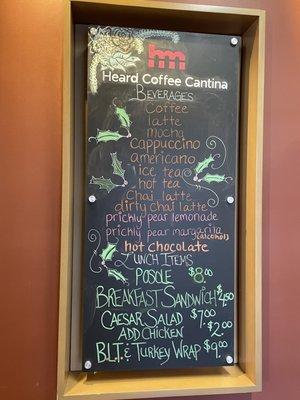 hm
Heard Coffee Cantina
BEVERAGES
Coffee
latte
mocha
Cappuccino
americano
ice tea
hot tea
Chai latte
dirty chai latte
prichly pear lemonade
prichly pear margarita
(alcohol)
hot chocolate
LUNCH ITEMS
POSOLE $8.00
BREAKFAST SANDWICH $4.50
CAESAR SALAD $7.00
ADD CHICKEN $2.00
B.L.T. & TURKEY WRAP $9.00